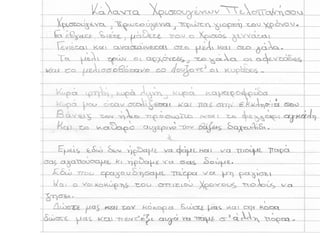 Κάλαντα Χριστουγέννων Πελοποννήσου
Χριστούγεννα, Πρωτούγεννα, πρώτη γιορτή του χρόνου.
Για βγάτε διέτε, μάθετε που ο Χριστός γεννάται
Γεννάται και αναθρέφεται στο μέλι και στο γάλα.
Το μέλι τρων οι άρχοντες, το γάλα οι αφεντάδες
και το μελισσοβότανο το λούζοντ' οι κυράδες.
Κυρά ψηλή, κυρά λιγνή, κυρά καμαροφρύδα
Κυρά μου όταν στολίζεσαι και πας στην εκκλησιά σου
Βάνεις τον ήλιο πρόσωπο και το φεγγάρι αγκάλη
Και το καθάριο αυγερινό τον βάζεις δαχτυλίδι.
Εμείς εδώ δεν ήρθαμε να φάμε και να πιούμε παρά
σας αγαπούσαμε κι ήρθαμε να σας δούμε.
Εδώ που τραγουδήσαμε πέτρα να μη ραγίσει
Και ο νοικοκύρης του σπιτιού χρόνους πολλούς να
ζήσει.
Δώστε μας και τον κόκορα δώστε μας και την κότα
δώστε μας και πέντ'έξι αυγά να πάμε σ'άλλη πόρτα.